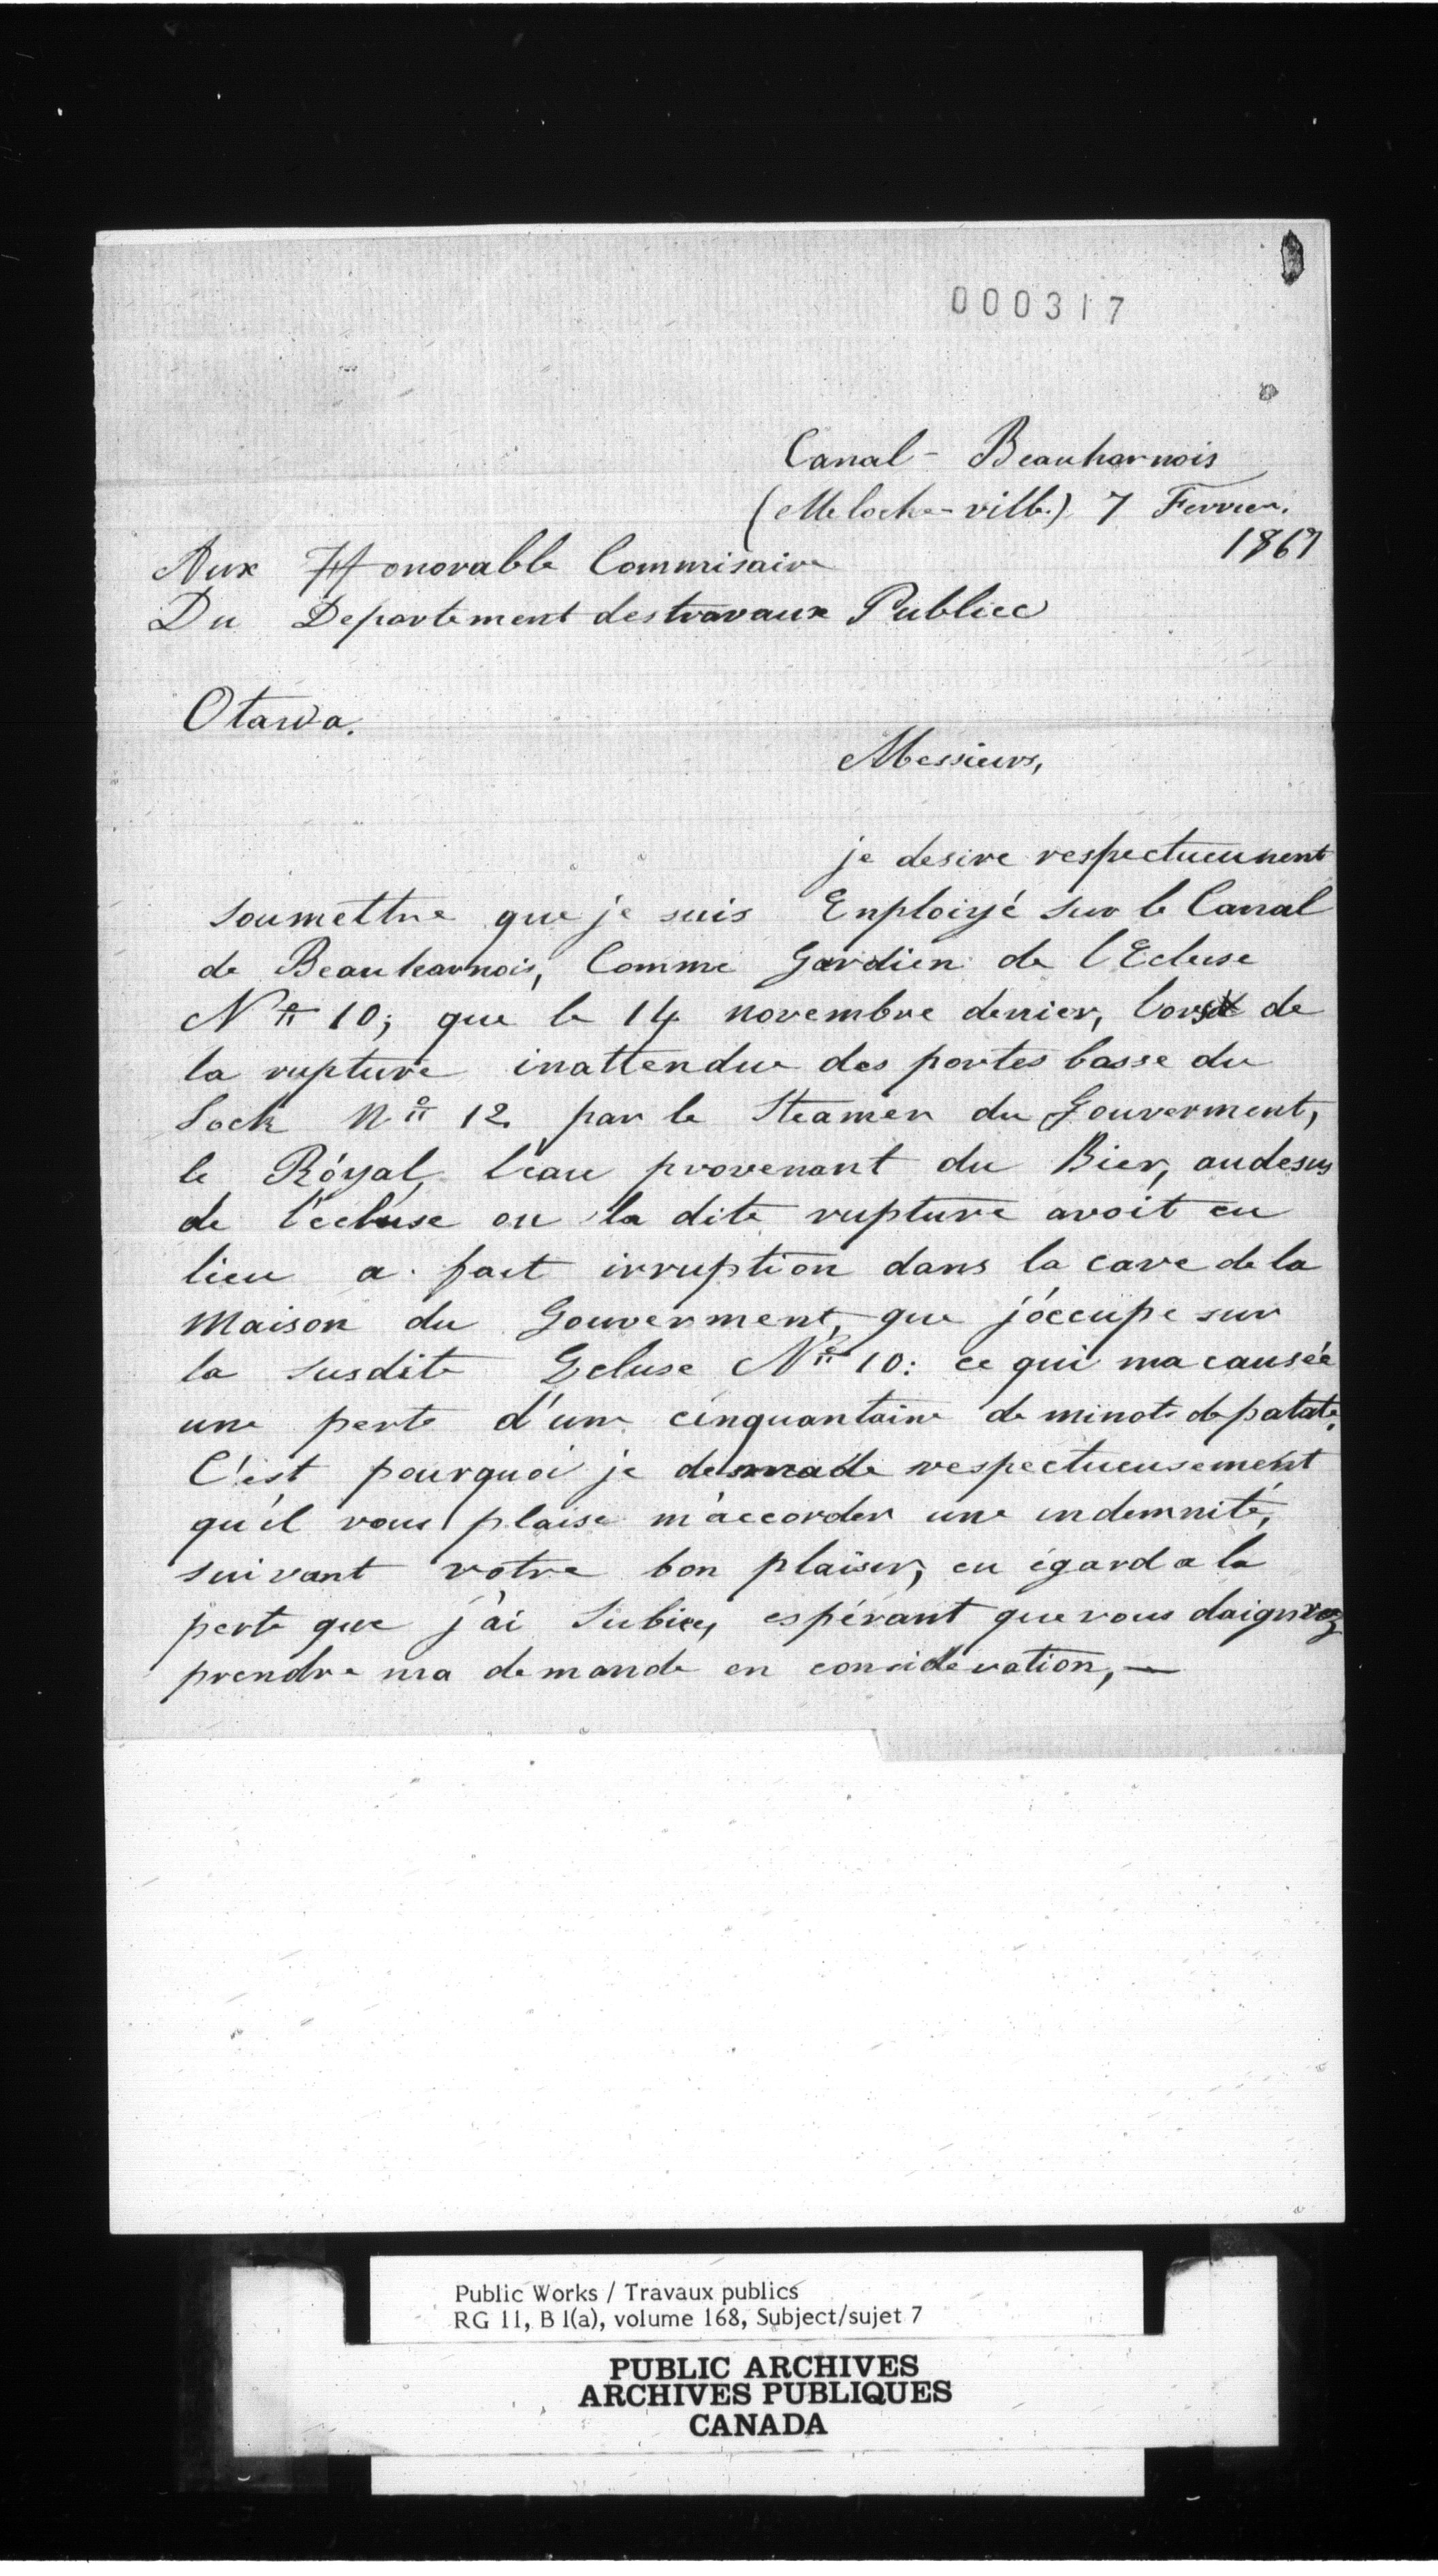 000317
Canal - Beauharnois
(Meloche-ville.) 7 Fevrier.
1867
Aux Honorable Commisaire
Du Departement des travaux Publicc
Otawa.
Messieurs,
je desire respectueument
soumettre que je suis Enploiyé sur le Canal
de Beauharnois, Comme Gardien de l'Ecluse
No 10; que le 14 novembre denier, lors de
la rupture inattendue des portes basse du
Lock No 12 par le Steamer du Gouverment,
le Róyal, l'eau provenant du Bier, audesus
de l'écluse ou la dite rupture avoit eu
lieu a fait irruption dans la cave de la
Maison du Gouverment, que j'occupe sur
la susdite Ecluse No 10: ce qui ma causée
une perte d'une cinquantaine de minots de patate,
C'est pourquoi je demade respectueusement
qu'il vous plaise m'accorder une indemnité,
suivant votre bon plaisir, eu égard a la
perte que j'ai subie, espérant que vous daignrez
prendre ma demande en considération, —
Public Works / Travaux publics
RG 11, B 1(a), volume 168, Subject/sujet 7
PUBLIC ARCHIVES
ARCHIVES PUBLIQUES
CANADA